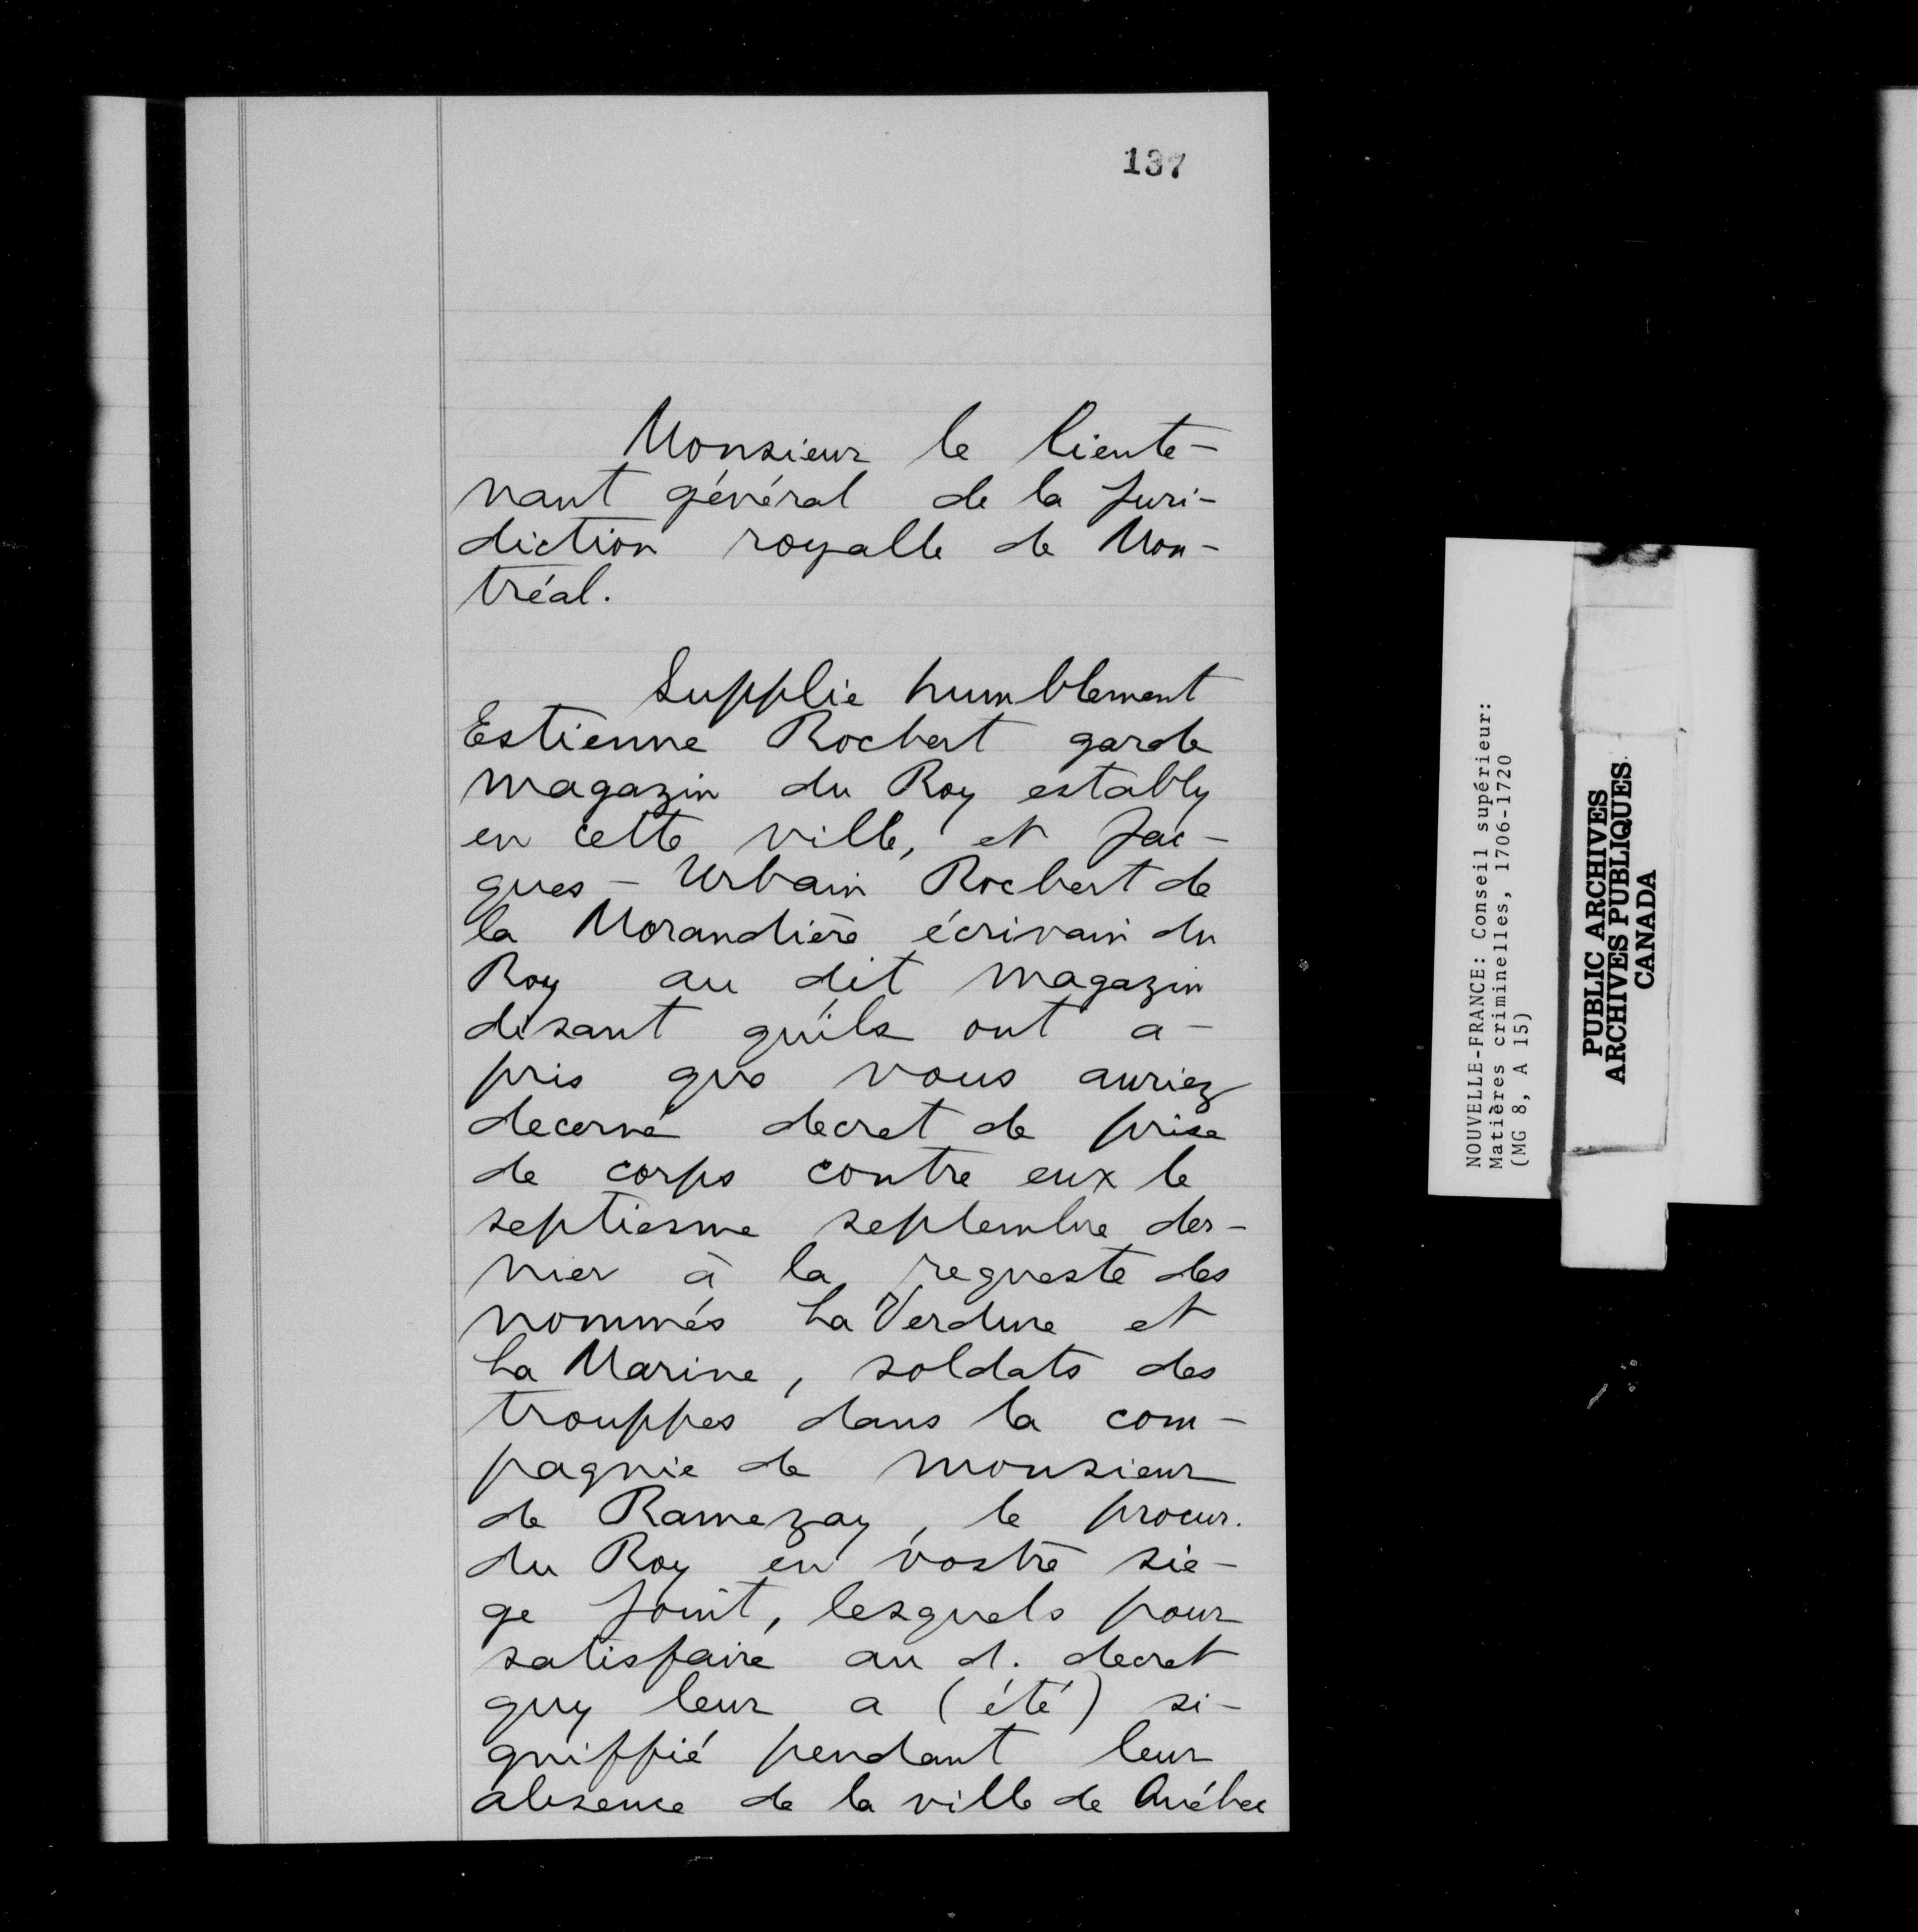 137
Monsieur le lieute-
nant général de la juri-
diction royalle de Mon-
tréal.
Supplie humblement
Estienne Rocbert garde
magazin du Roy estably
en cette ville, et Jac-
ques-Urbain Rocbert de
la Morandière écrivain du
Roy au dit magazin
disant qu'ils ont a-
pris que vous auriez
decerné decret de prise
de corps contre eux le
septiesme septembre der-
nier à la requeste des
nommés La Verdure et
La Marine, soldats des
trouppes dans la com-
pagnie de monsieur
de Ramezay, le procur.
du Roy en vostre siè-
ge joint, lesquels pour
satisfaire au d. decret
quy leur a (été) si-
gniffié pendant leur
absence de la ville de Québec
NOUVELLE-FRANCE: Conseil supérieur:
Matières criminelles, 1706-1720
(MG 8, A 15)
PUBLIC ARCHIVES
ARCHIVES PUBLIQUES
CANADA